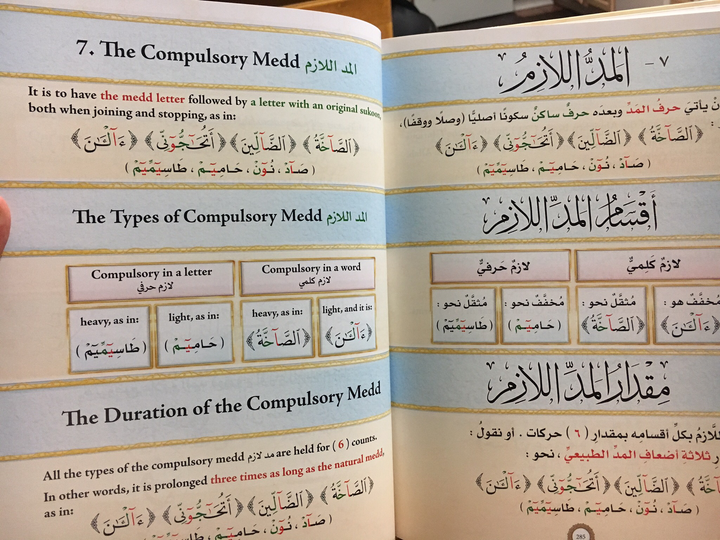 7. The Compulsory Medd المد اللازم
It is to have the medd letter followed by a letter with an original sukoon,
both when joining and stopping, as in:
﴿ الصَّآخَّةُ ﴾ ﴿ الضَّآلِّينَ ﴾ ﴿ أَتُحَآجُّوٓنِّي ﴾ ﴿ ءَآلْـَٰنَ ﴾
( صَـآدْ ، نُـوٓنْ ، حَـامِيـٓـمْ ، طَاسِيٓمِّيٓمْ )
The Types of Compulsory Medd المد اللازم
Compulsory in a letter
لازم حرفي
Compulsory in a word
لازم كلمي
heavy, as in:
( طَاسِيٓمِّيٓمْ )
light, as in:
( حَـامِيـٓـمْ )
heavy, as in:
﴿ الصَّآخَّةُ ﴾
light, and it is:
﴿ ءَآلْـَٰنَ ﴾
The Duration of the Compulsory Medd
All the types of the compulsory medd مد لازم are held for ( 6 ) counts.
In other words, it is prolonged three times as long as the natural medd,
as in:
﴿ الصَّآخَّةُ ﴾ ﴿ الضَّآلِّينَ ﴾ ﴿ أَتُحَآجُّوٓنِّي ﴾ ﴿ ءَآلْـَٰنَ ﴾
( صَـآدْ ، نُـوٓنْ ، حَـامِيـٓـمْ ، طَاسِيٓمِّيٓمْ )
٧ - المَدُّ اللازِمُ
يأتيَ حرفُ المَدِّ وبعدَه حرفٌ ساكنٌ سكونًا أصليًّا (وصلًا ووقفًا)،
﴿ الصَّآخَّةُ ﴾ ﴿ الضَّآلِّينَ ﴾ ﴿ أَتُحَآجُّوٓنِّي ﴾ ﴿ ءَآلْـَٰنَ ﴾
( صَـآدْ ، نُـوٓنْ ، حَـامِيـٓـمْ ، طَاسِيٓمِّيٓمْ )
أَقْسَامُ المَدِّ اللازِمِ
لازمٌ كَلِميٌّ
لازمٌ حَرفيٌّ
مُخفَّفٌ هو :
﴿ ءَآلْـَٰنَ ﴾
مُثقَّلٌ نحو :
﴿ الصَّآخَّةُ ﴾
مُخفَّفٌ نحو :
( حَـامِيـٓـمْ )
مُثقَّلٌ نحو :
( طَاسِيٓمِّيٓمْ )
مِقْدَارُ المَدِّ اللازِمِ
بكلِّ أقسامِه بمقدارِ ( ٦ ) حركات . أو نقولُ :
ثلاثةِ أضعافِ المَدِّ الطبيعيِّ ، نحو :
﴿ الضَّآلِّينَ ﴾ ﴿ أَتُحَآجُّوٓنِّي ﴾ ﴿ ءَآلْـَٰنَ ﴾
( صَـآدْ ، نُـوٓنْ ، حَـامِيـٓـمْ ، طَاسِيٓمِّيٓمْ )
285